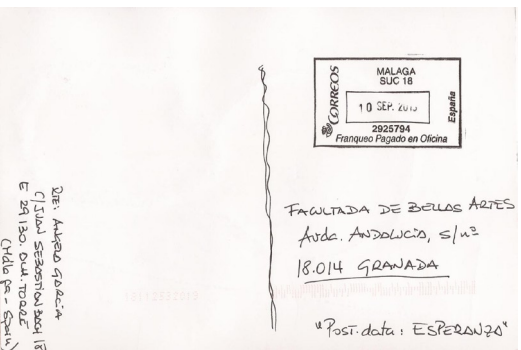 CORREOS
MALAGA
SUC 18
10 SEP. 2015
2925794
Franqueo Pagado en Oficina
España
FACULTADA DE BELLAS ARTES
Avda. ANDALUCIA, s/nº
18.014 GRANADA
"Post.data: ESPERANZA"
RTE: ANGELA GARCIA
C/JUAN SEBASTIAN BACH 18
E 29130. ALH. TORRE
(Málaga - Spain)